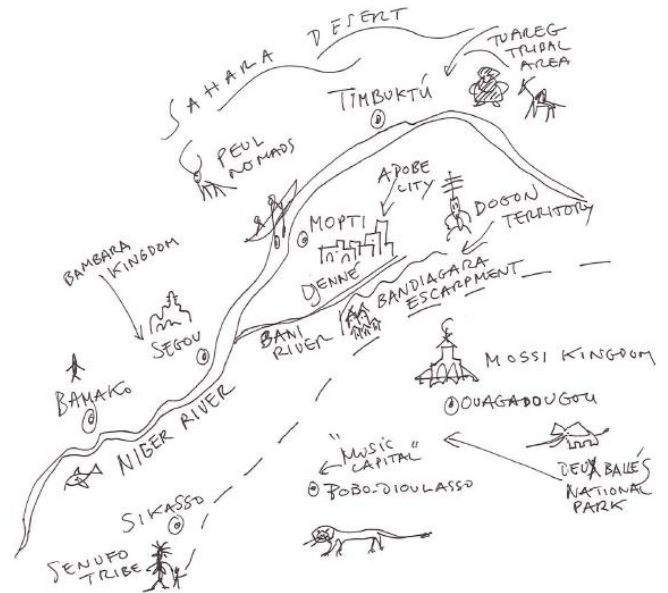 SAHARA DESERT
TUAREG
TRIBAL
AREA
TIMBUKTÚ
PEUL
NOMADS
ADOBE
CITY
MOPTI
DOGON
TERRITORY
BAMBARA
KINGDOM
DJENNÉ
BANDIAGARA
ESCARPMENT
SEGOU
BANI
RIVER
MOSSI KINGDOM
BAMAKO
OUAGADOUGOU
NIGER RIVER
"MUSIC
CAPITAL"
DEUX BALLÉS
NATIONAL
PARK
BOBO-DIOULASSO
SIKASSO
SENUFO
TRIBE